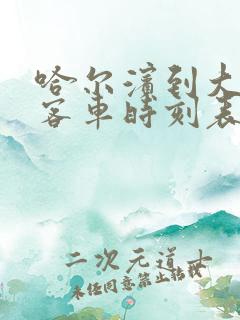 哈尔滨到大
客车时刻表
二次元道士
未经同意禁止转载